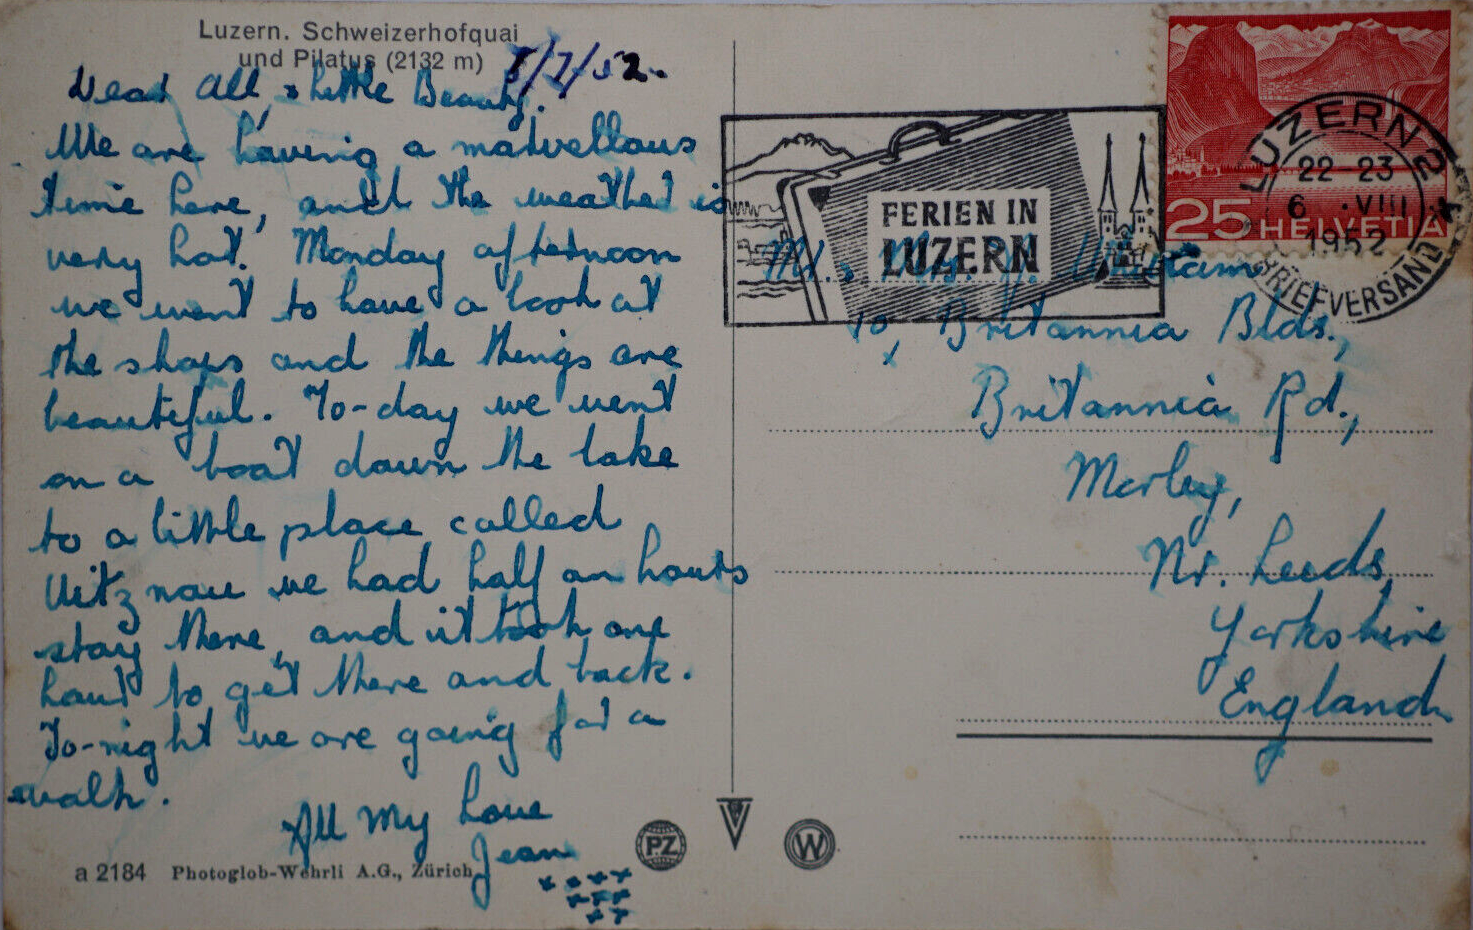 Luzern. Schweizerhofquai
und Pilatus (2132 m)
/7/52.
Dear All, & Little Beauty,
We are having a marvellous
time here, and the weather is
very hot. Monday afternoon
we went to have a look at
the shops and the things are
beautiful. To-day we went
on a boat down the lake
to a little place called
Vitznau we had half an hours
stay there, and it took one
hour to get there and back.
To-night we are going for a
walk.
All My Love
Jean
x x x x
x x x
x x
a 2184 Photoglob-Wehrli A.G., Zürich
PZ
W
FERIEN IN
LUZERN
25 HELVETIA
LUZERN 2
22-23
6.VIII
1952
BRIEFVERSAND
Mr. & Mrs.
10, Britannia Blds.,
Britannia Rd.,
Morley,
Nr. Leeds,
Yorkshire
England